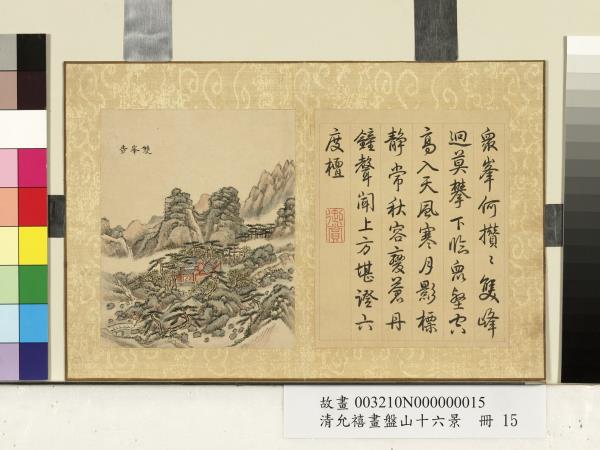 雙峯寺
衆峯何攢〻雙峰
迥莫攀下臨衆壑空
高入天風寒月影標
靜常秋容變蒼丹
鐘聲聞上方堪證六
度檀
御賞
故畫 003210N000000015
清允禧畫盤山十六景 冊 15